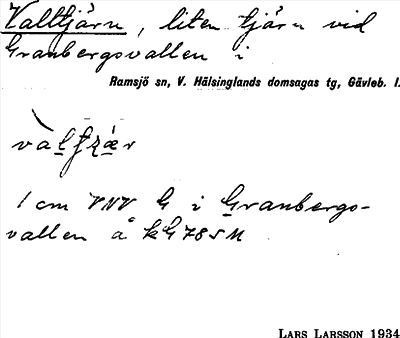 Valltjärn, liten tjärn vid
Granbergsvallen i
Ramsjö sn, V. Hälsinglands domsagas tg, Gävleb. l.
1 cm VNV G i Granbergs-
vallen å kG 78 S M
LARS LARSSON 1934